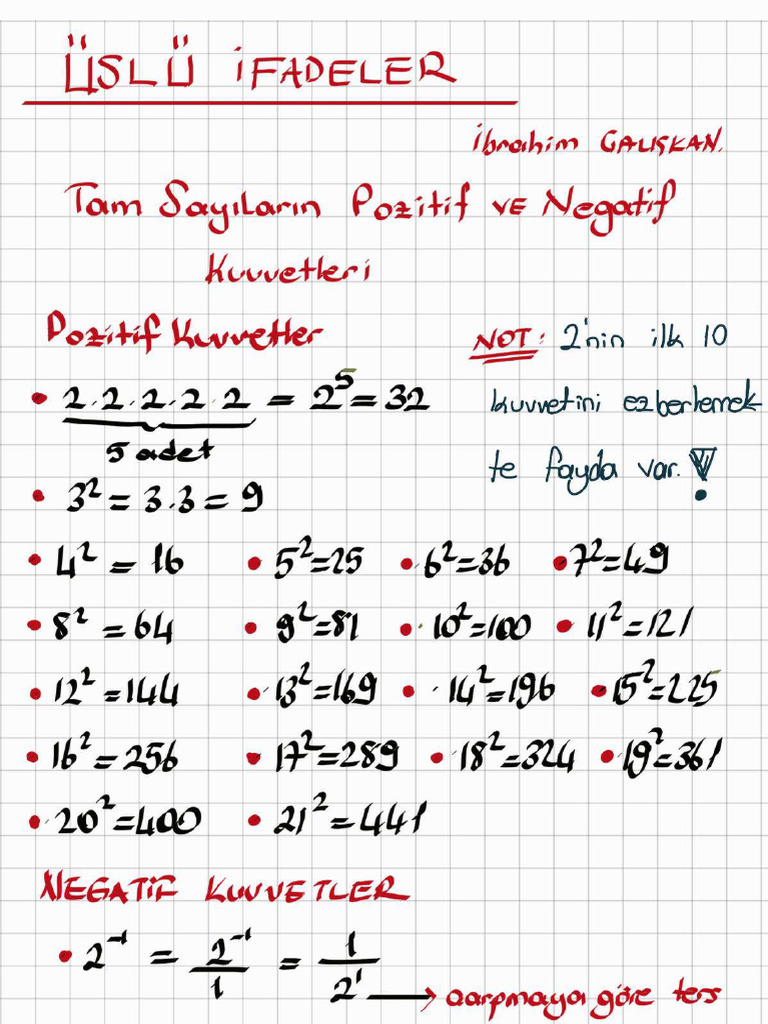 ÜSLÜ İFADELER
İbrahim ÇALIŞKAN.
Tam Sayıların Pozitif ve Negatif
Kuvvetleri
Pozitif Kuvvetler
NOT: 2'nin ilk 10
kuvvetini ezberlemek
te fayda var.!
• 2.2.2.2.2 = 2⁵ = 32
5 adet
• 3² = 3.3 = 9
• 4² = 16 • 5²=25 • 6²=36 • 7²=49
• 8² = 64 • 9²=81 • 10²=100 • 11²=121
• 12²=144 • 13²=169 • 14²=196 • 15²=225
• 16²=256 • 17²=289 • 18²=324 • 19²=361
• 20²=400 • 21²=441
NEGATİF KUVVETLER
• 2⁻¹ = 2⁻¹/1 = 1/2¹ → çarpmaya göre ters